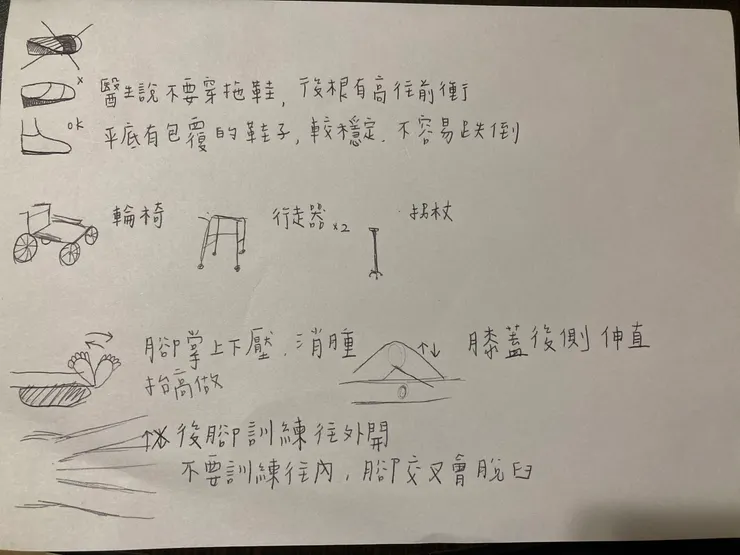 x
醫生說不要穿拖鞋,後根有高往前衝
OK
平底有包覆的鞋子,較穩定.不容易跌倒
輪椅
行走器 x2
拐杖
腳掌上下壓.消腫
抬高做
膝蓋後側 伸直
後腳訓練往外開
不要訓練往內,腳交叉會脫臼